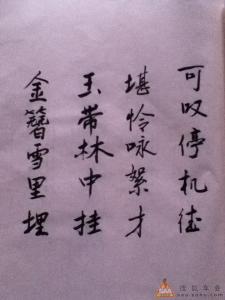 可叹停机德
堪怜咏絮才
玉带林中挂
金簪雪里埋
搜狐车会